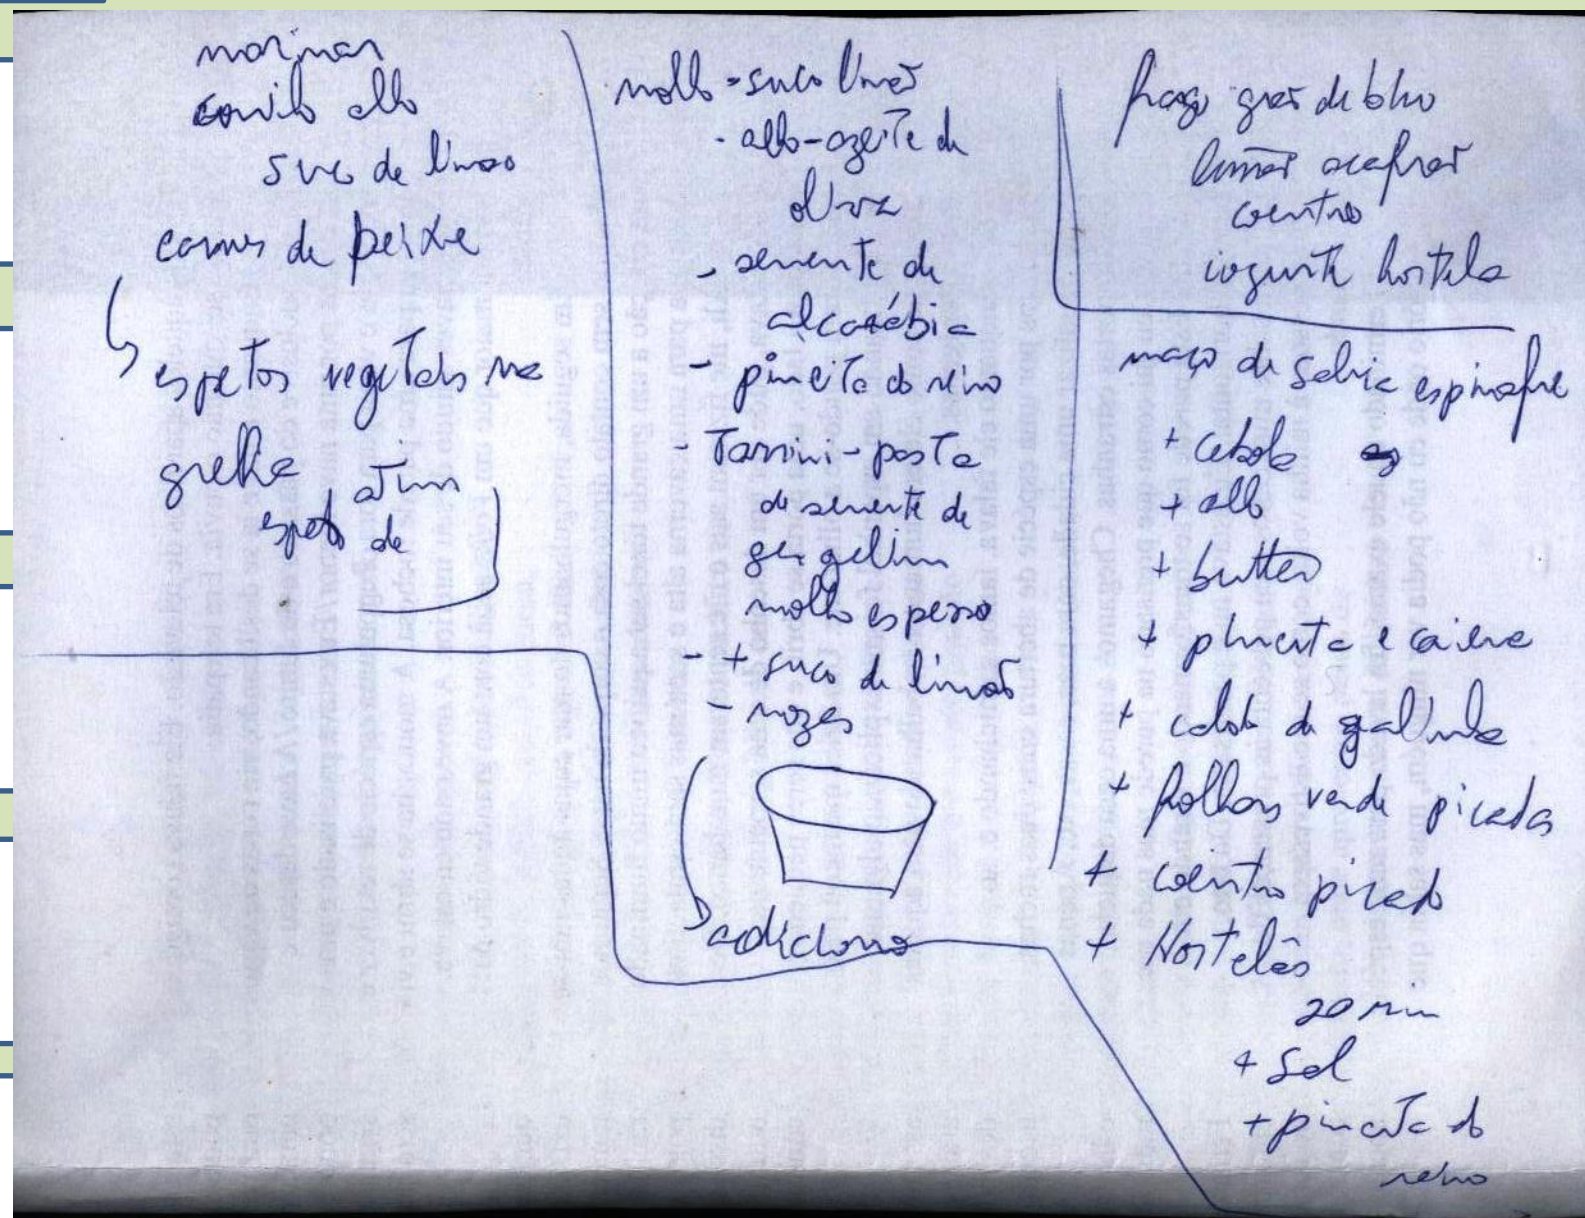 marinar
cominho alho
suco de limao
carnes de peixe
espetos vegetais na
grelha atum
espeto de
molho - suco limão
- alho - azeite de
oliva
- semente de
alcarábia
- pimeita do reino
- Tarrini - pasta
de semente de
gergelim
molho espesso
- + suco de limão
- nozes
adiciono
frango grão de bico
limão açafrão
coentro
iogurte hortela
maço de salvia espinafre
+ cebola
+ alho
+ butter
+ pimenta e caiena
+ caldo de galinha
+ folhas verde picadas
+ coentro picado
+ Hortelãs
20 min
+ Sal
+ pimenta do
reino